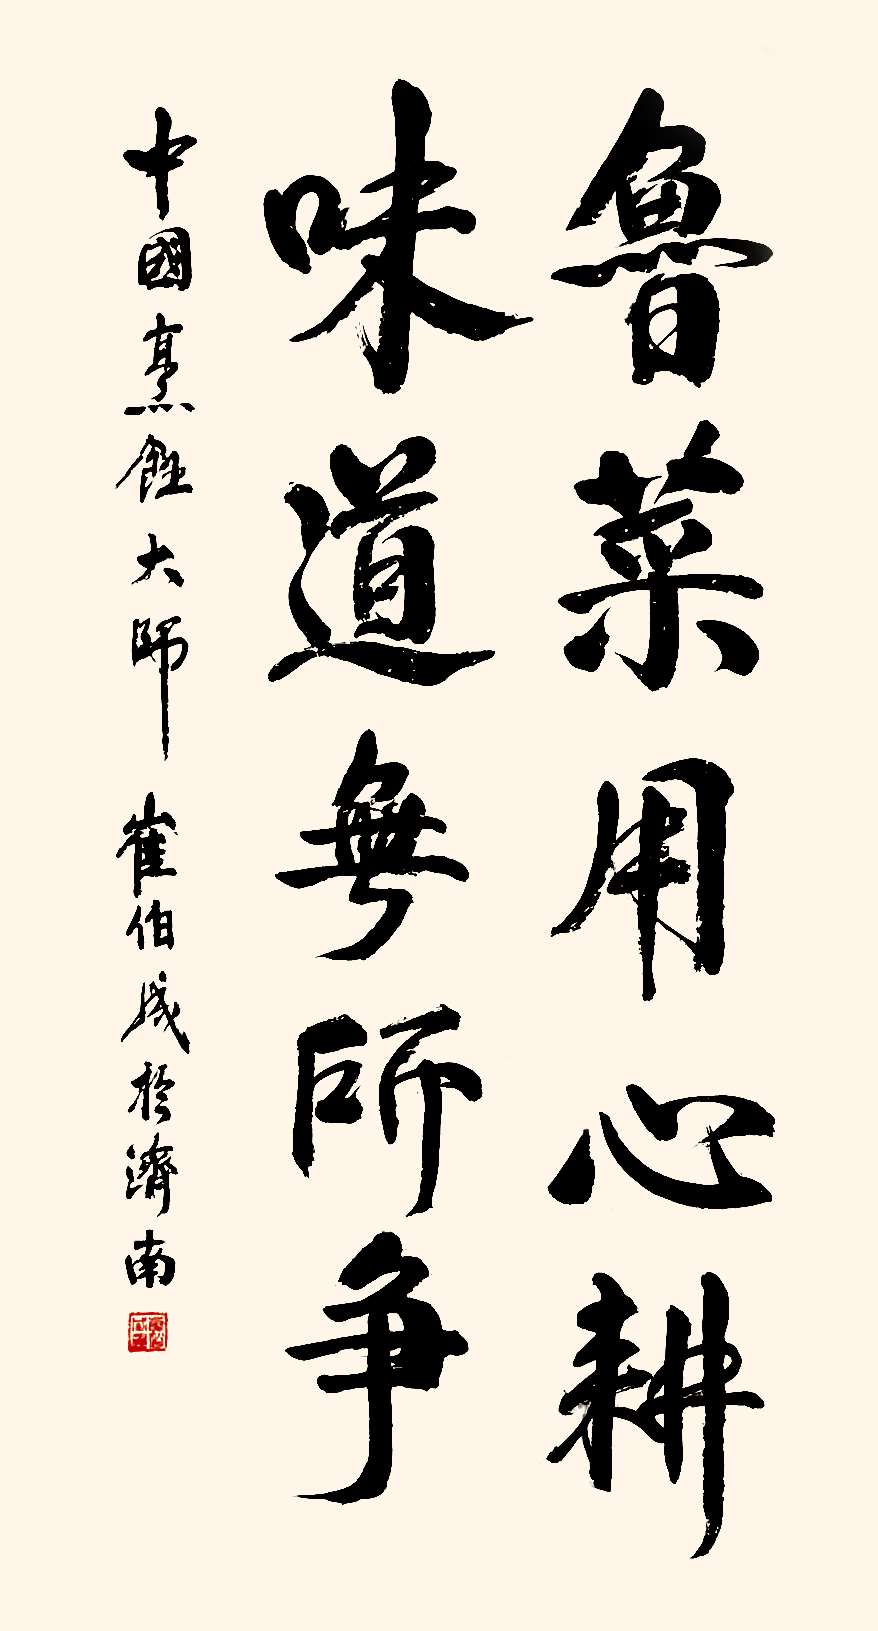 魯菜用心耕
味道無師争
中國烹飪大師 崔伯成於濟南